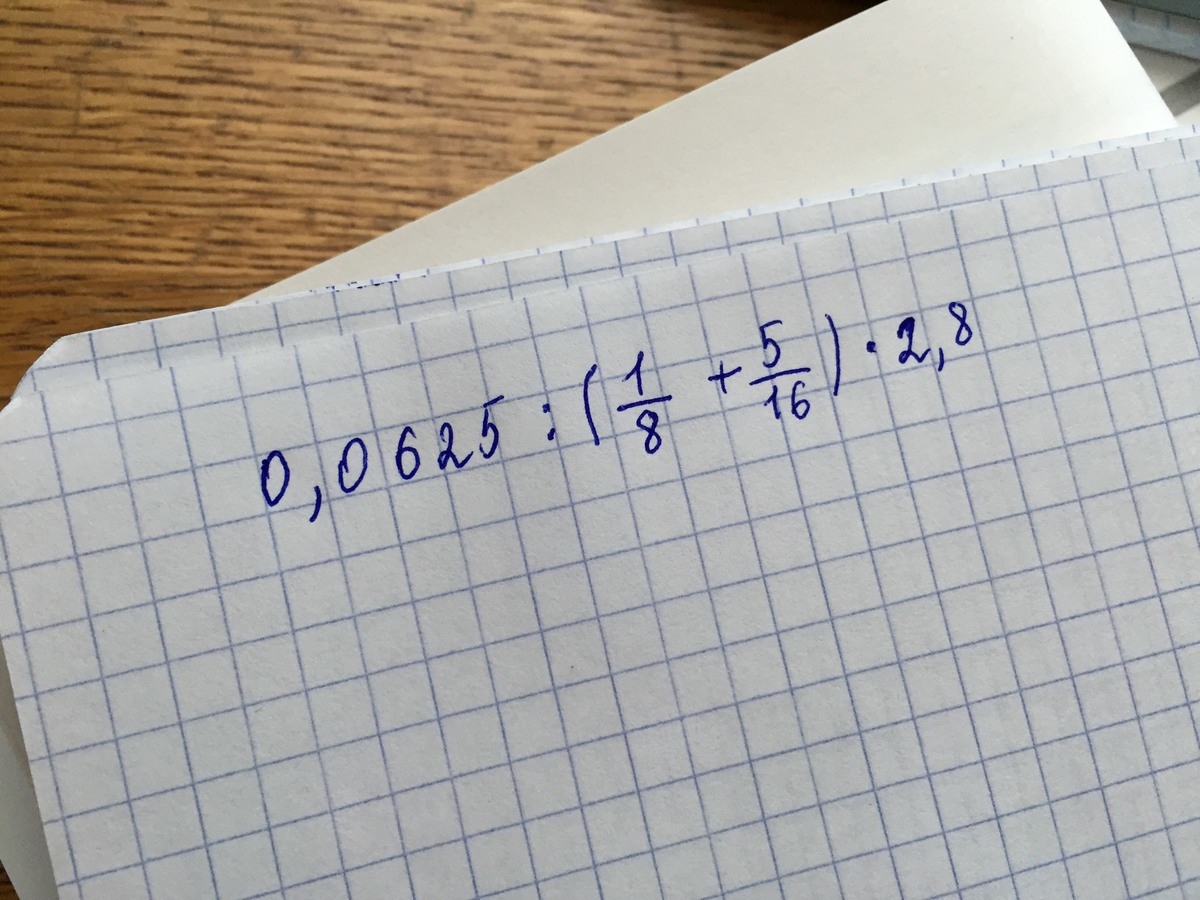 0,0625 : (1/8 + 5/16) · 2,8